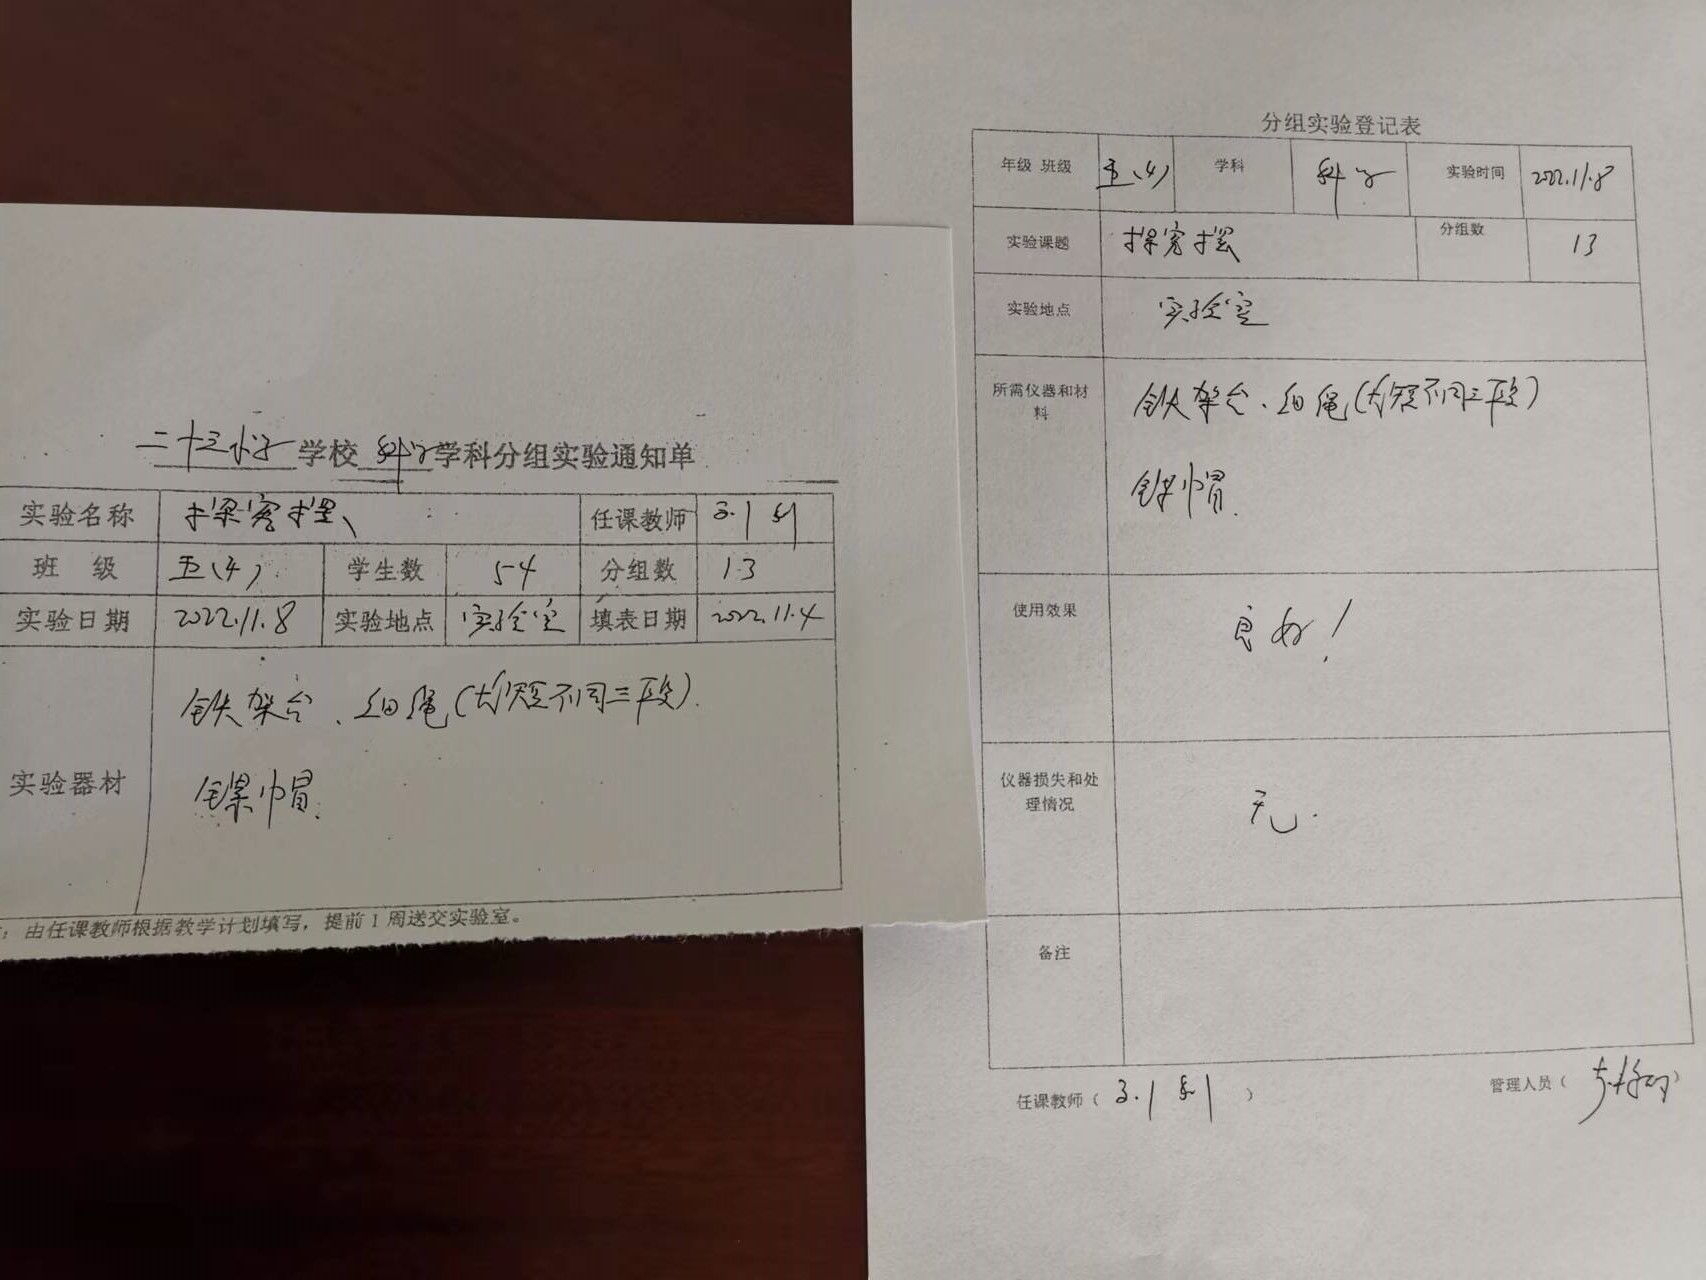 学校 科学 学科分组实验通知单
实验名称 探究摆 任课教师
班 级 五(4) 学生数 54 分组数 13
实验日期 2022.11.8 实验地点 实验室 填表日期 2022.11.4
实验器材 铁架台、细绳(长短不同三段).
镙帽.
：由任课教师根据教学计划填写，提前1周送交实验室。
分组实验登记表
年级 班级 五(4) 学科 科学 实验时间 2022.11.8
实验课题 探究摆 分组数 13
实验地点 实验室
所需仪器和材料 铁架台、细绳(长短不同三段)
镙帽.
使用效果 良好！
仪器损失和处理情况 无.
备注
任课教师（ ） 管理人员（ ）